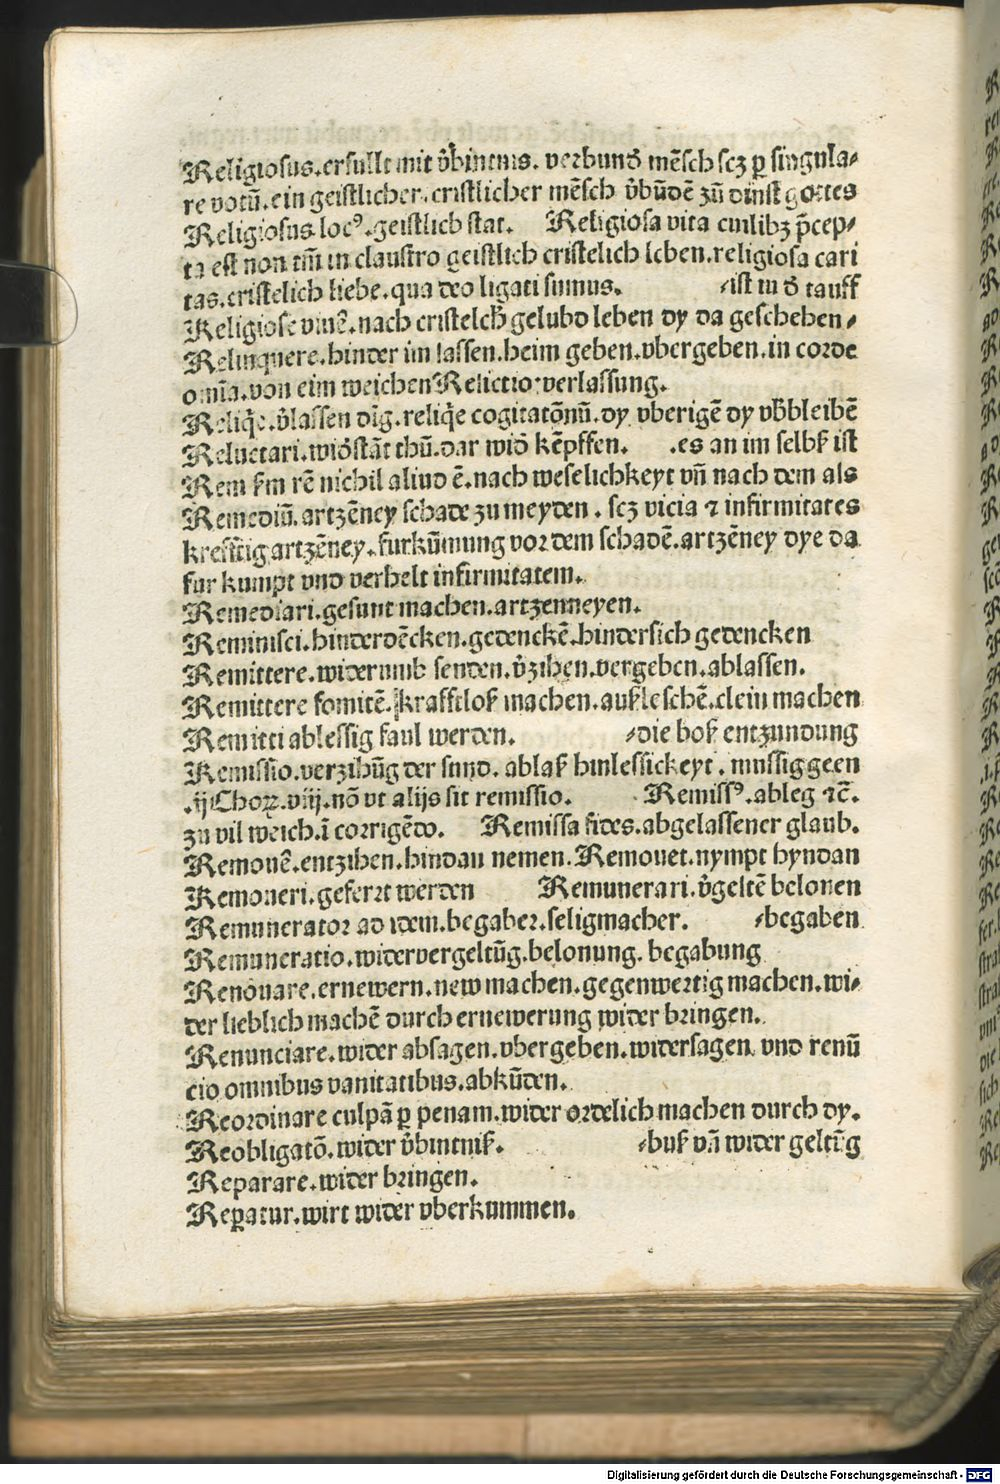 Religiosus.erfullt mit v̉bintnis. verbund̉ mẽsch scz ꝑ singula⸗
re votũ.ein geistlicher.cristlicher mẽsch v̉bũdẽ zũ dinst gottes
Religiosus locꝰ.geistlich stat. Religiosa vita cuilibꝫ p̃cep⸗
ta est non tm̃ in claustro geistlich cristelich leben.religiosa cari
tas.cristelich liebe.qua deo ligati sumus. ⸗ist in d̉ tauff
Religiose viuẽ.nach cristelch̃ gelubd leben dy da gescheben⸗
Relinquere.hinder im lassen.heim geben.vbergeben.in corde
om̃ia.von eim weichen Relictio verlassung.
Reliq̃e.v̉lassen dĩg.reliq̃e cogitatõnũ.dy vberigẽ dy vb̉bleibẽ
Reluctari.wid̉stãt thũ.dar wid̉ kẽpffen. .es an im selbſ ist
Rem ſm rẽ nichil aliud ẽ.nach weselichkeyt vñ nach dem als
Remediũ.artzẽney schade zu meyden. scz vicia ⁊ infirmitates
krefftig artzẽney.furkũmung vor dem schadẽ.artzẽney dye da
fur kumpt vnd verhelt infirmitatem.
Remediari.gesunt machen.artzenneyen.
Reminisci.hinderdẽcken.gedenckẽ.hindersich gedencken
Remittere.widerumb senden.v̉zihen.vergeben.ablassen.
Remittere fomitẽ.krafftloſ machen.auſleschẽ.clein machen
Remitti ablessig faul werden. ⸗die boſ entzundung
Remissio.verzihũg der sund.ablaſ hinlessickeyt.mussiggeen
.ij Choꝝ.viij.nõ vt alijs sit remissio. Remissꝰ.ableg ⁊c̃.
zu vil weich.ĩ corrigẽdo. Remissa fides.abgelassener glaub.
Remouẽ.entzihen.hindan nemen.Remouet.nympt hyndan
Remoueri.geferrt werden Remunerari.v̉geltẽ belonen
Remunerator ad idem.begaber.seligmacher. ⸗begaben
Remuneratio.widervergeltũg.belonung.begabung
Renouare.ernewern.new machen.gegenwertig machen.wi⸗
der lieblich machẽ durch ernewerung wider bringen.
Renunciare.wider absagen.vbergeben.widersagen.vnd renũ
cio omnibus vanitatibus.abkũden.
Reordinare culpã ꝑ penam.wider ordelich machen durch dy.
Reobligatõ.wider v̉bintniſ. ⸗buſ vñ wider geltũg
Reparare.wider bringen.
Reꝑatur.wirt wider vberkummen.
Digitalisierung gefördert durch die Deutsche Forschungsgemeinschaft - DFG